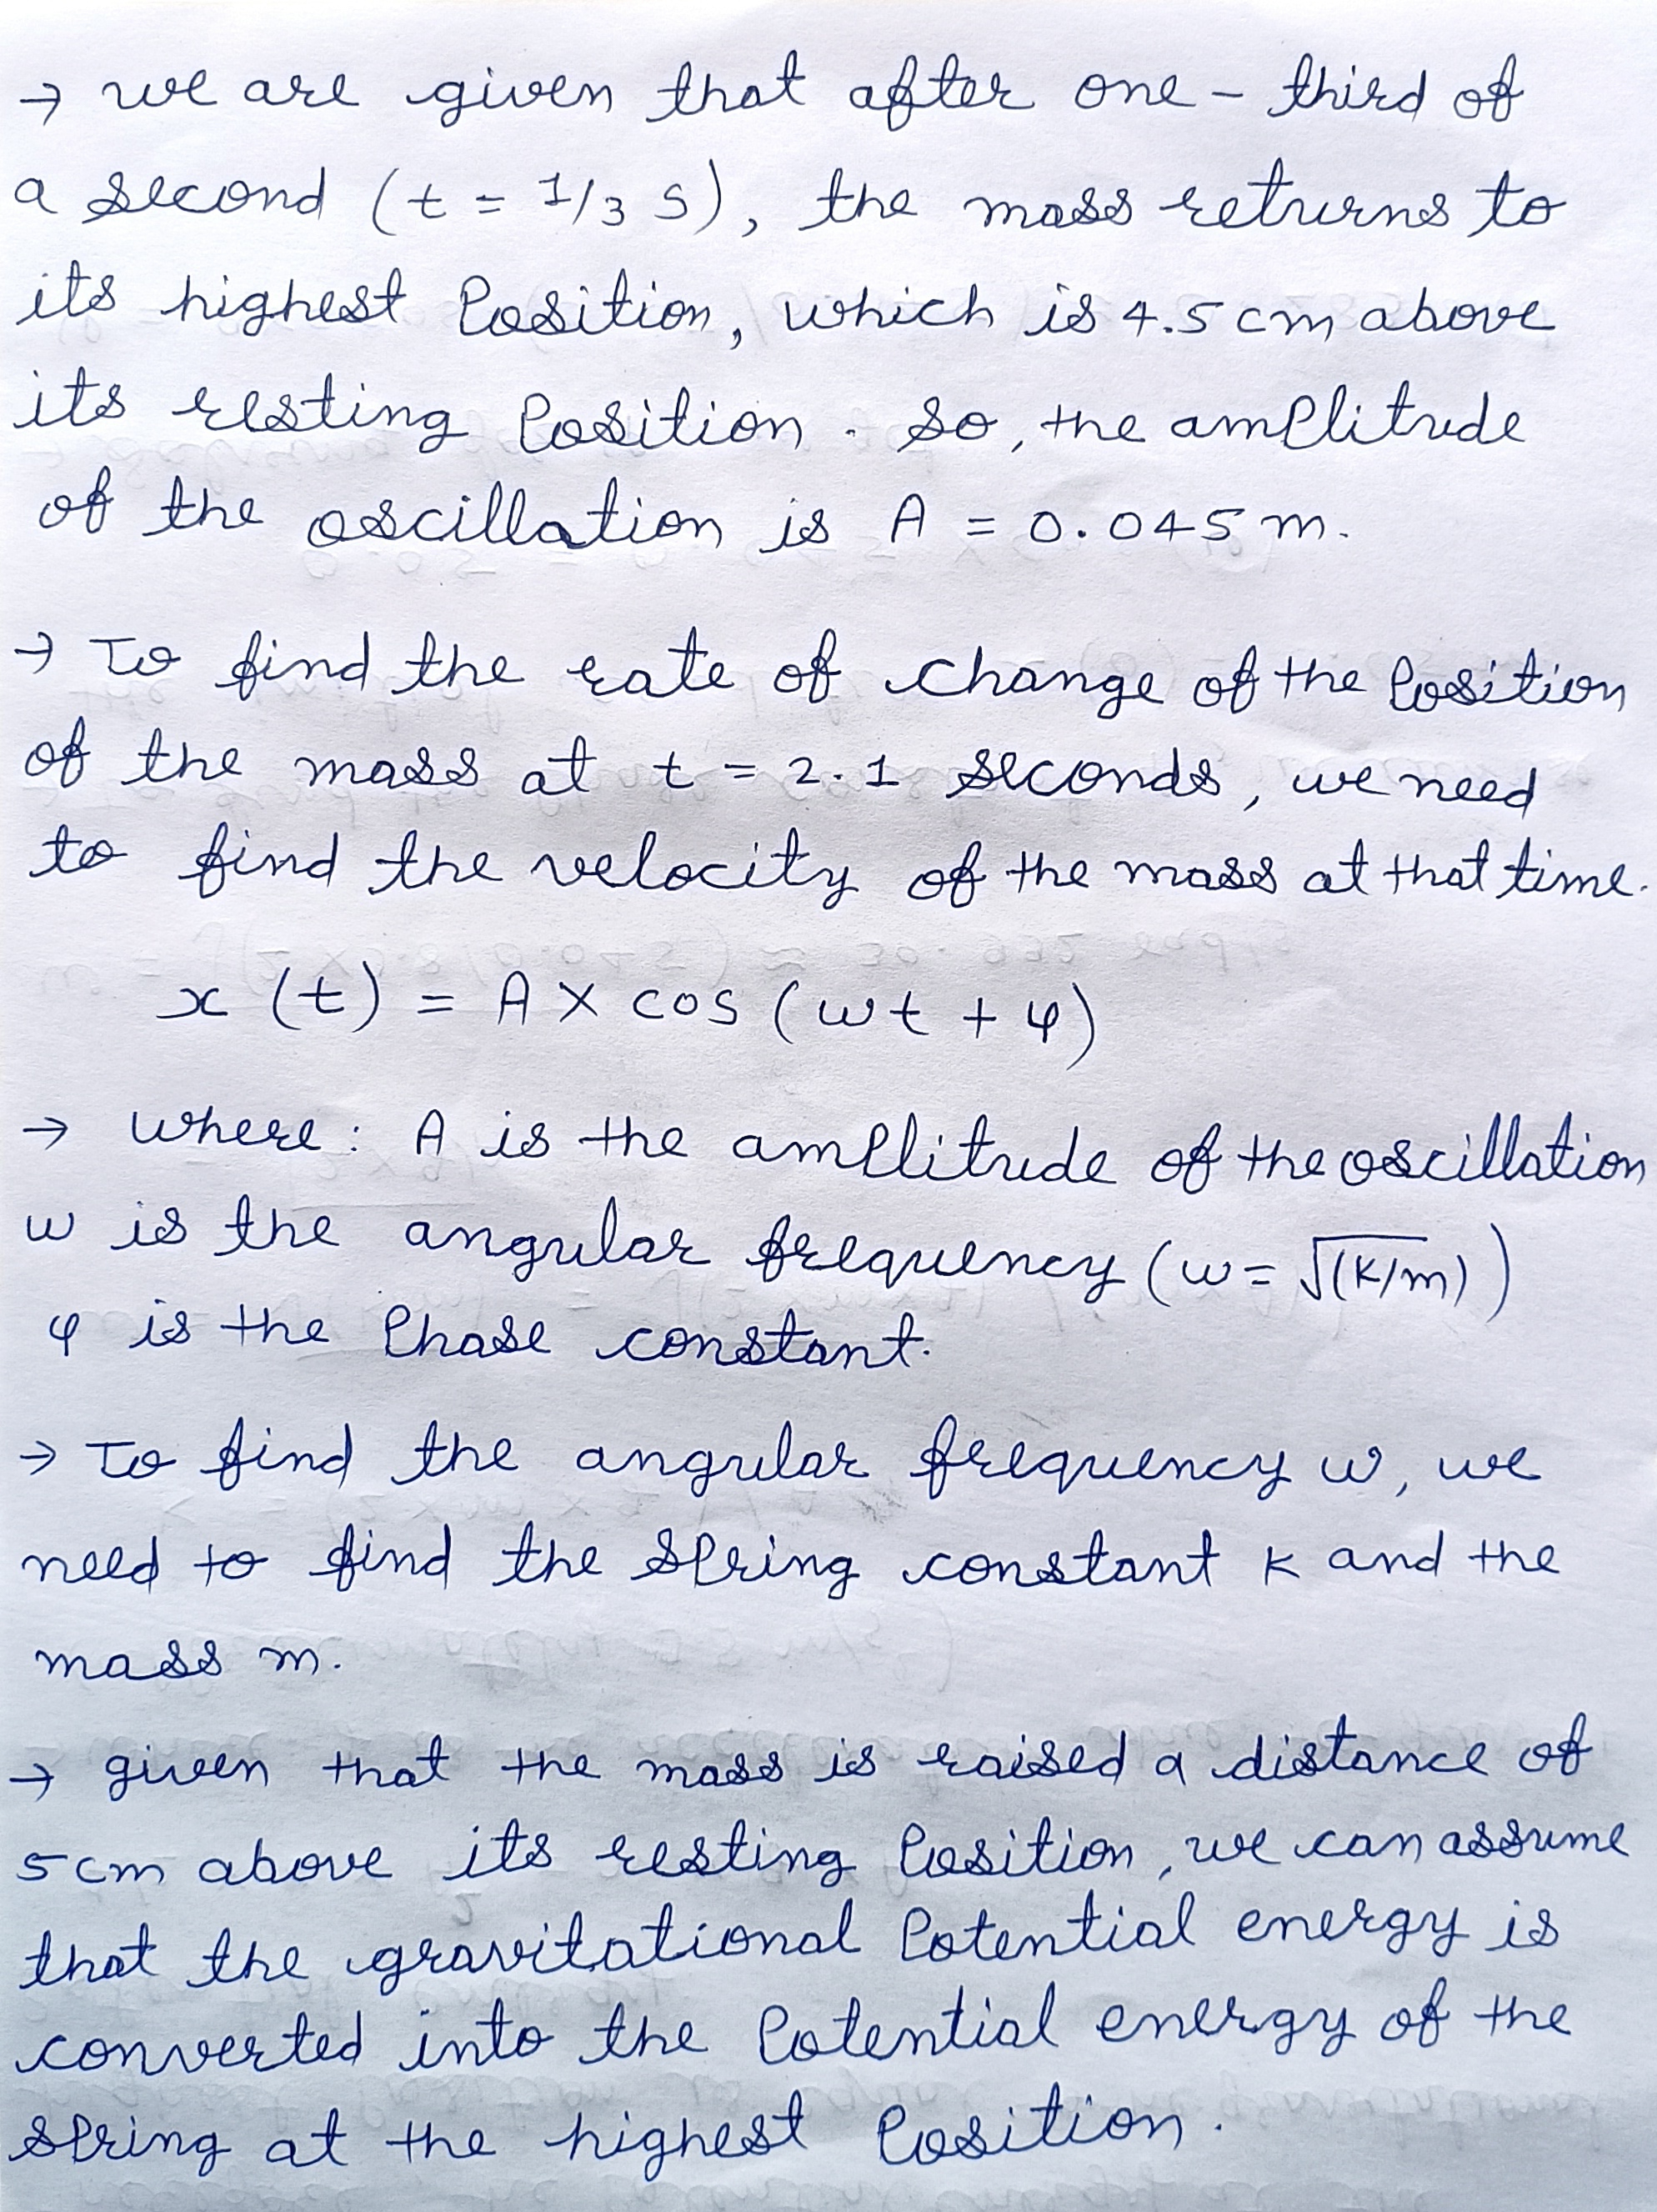 → we are given that after one - third of
a second (t = 1/3 s), the mass returns to
its highest Position, which is 4.5 cm above
its resting Position. So, the amplitude
of the oscillation is A = 0.045 m.
→ To find the rate of change of the Position
of the mass at t = 2.1 seconds, we need
to find the velocity of the mass at that time.
x (t) = A X cos (wt + φ)
→ where: A is the amplitude of the oscillation
w is the angular frequency (w = √(k/m))
φ is the Phase constant.
→ To find the angular frequency w, we
need to find the spring constant k and the
mass m.
→ given that the mass is raised a distance of
5 cm above its resting Position, we can assume
that the gravitational Potential energy is
converted into the Potential energy of the
spring at the highest Position.